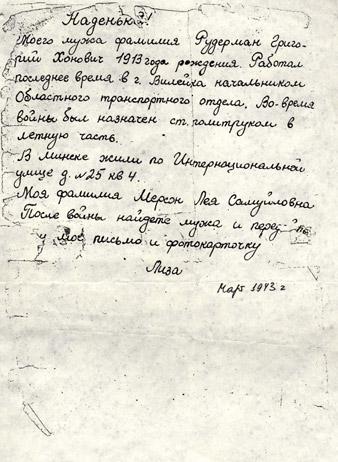 Наденька!
Моего мужа фамилия Рудерман Григо-
рий Хонович 1913 года рождения. Работал
последнее время в г. Вилейха начальником
Областного транспортного отдела. Во время
войны был назначен ст. политруком в
летную часть.
В Минске жили по Интернациональной
улице д. №25 кв 4.
Моя фамилия Мерсон Лея Самуйловна
После войны найдете мужа и
мое письмо и фотокарточку
Лиза
Март 1943 г